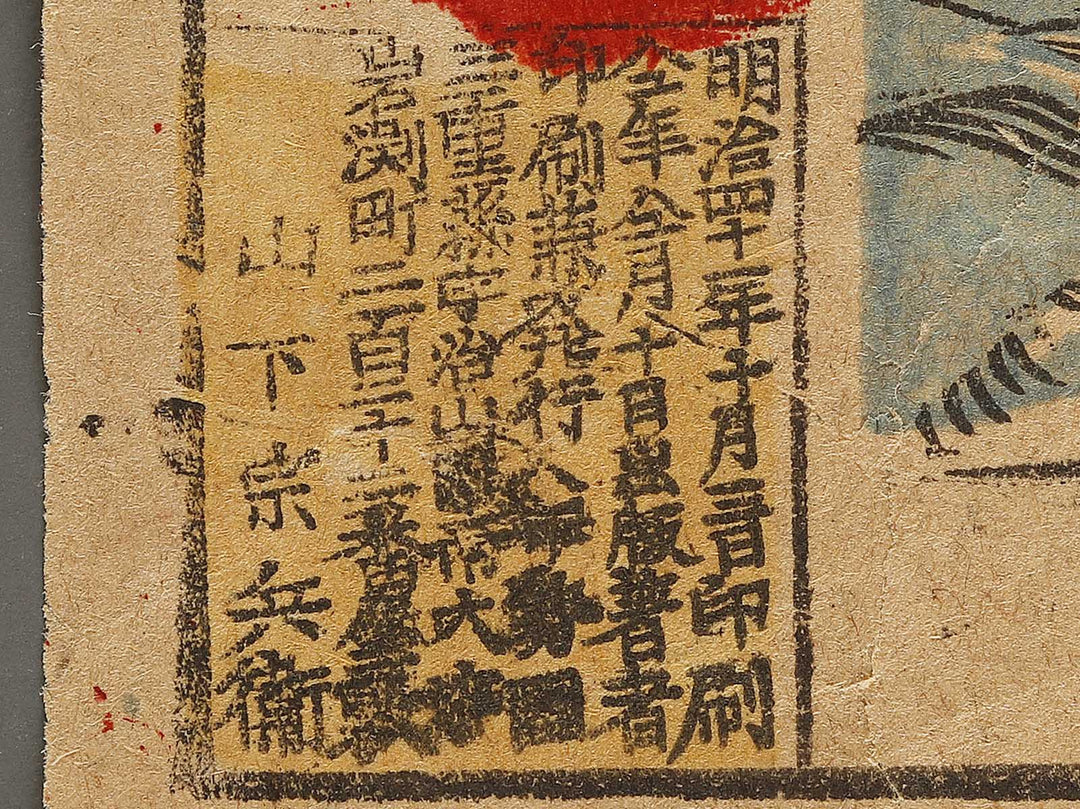 明治四十一年十月一日印刷
全年全月十日出版著者
印刷兼発行人伊勢国
三重縣宇治山田市大字
岩渕町二百三十二番屋敷
山下宗兵衛